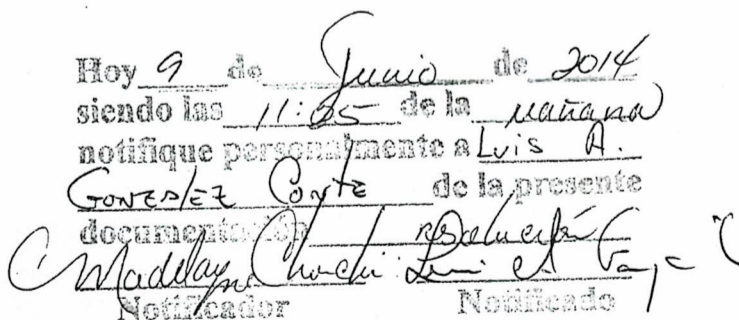 Hoy 9 de Junio de 2014
siendo las 11:05 de la mañana
notifique personalmente a Luis A.
Gonzalez Conte de la presente
documentación resolución
Madelayne
Notificador Notificado